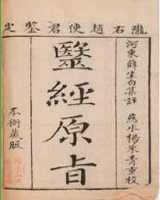 隴右趙使君鑒定
河東薛生白集註 水楊青重校
醫經原旨
本衙藏版